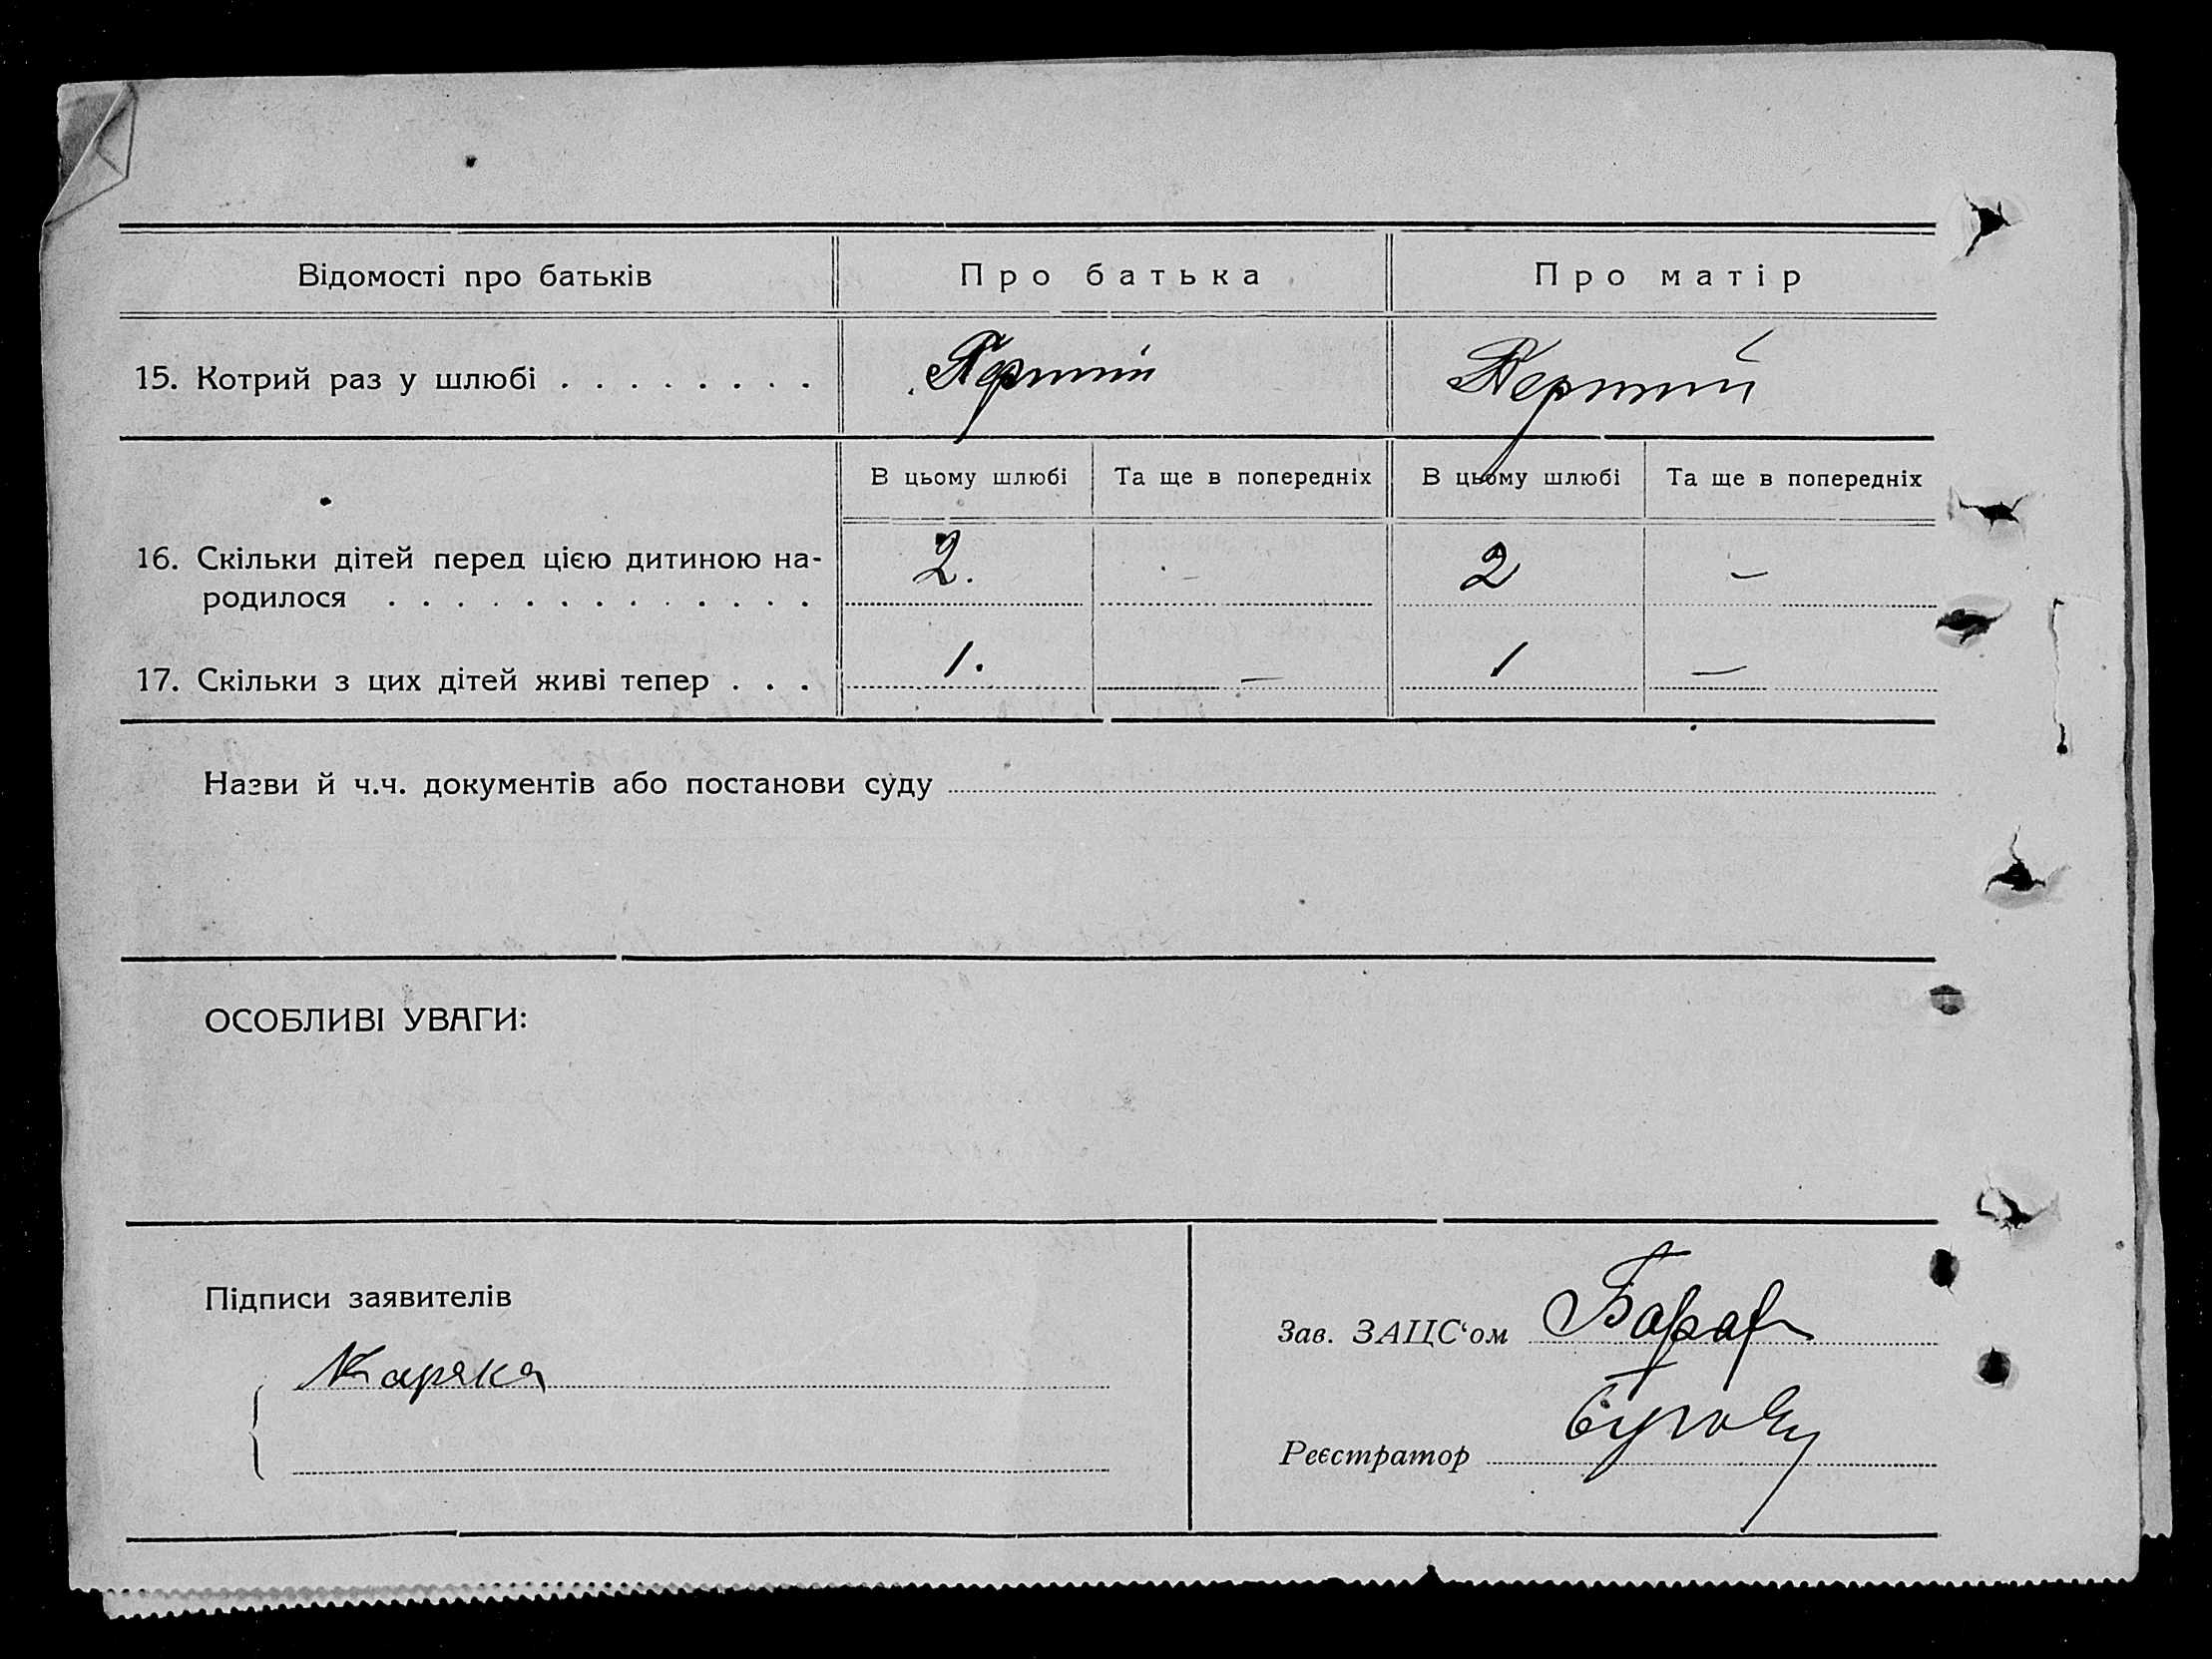 Відомості про батьків Про батька Про матір
15. Котрий раз у шлюбі . . . . . . . . Перший Перший
В цьому шлюбі Та ще в попередніх В цьому шлюбі Та ще в попередніх
16. Скільки дітей перед цією дитиною на-
родилося . . . . . . . . . . . . . 2. – 2 –
17. Скільки з цих дітей живі тепер . . . 1. – 1 –
Назви й ч.ч. документів або постанови суду
ОСОБЛИВІ УВАГИ:
Підписи заявителів
Каряка
Зав. ЗАЦС‘ом
Реєстратор